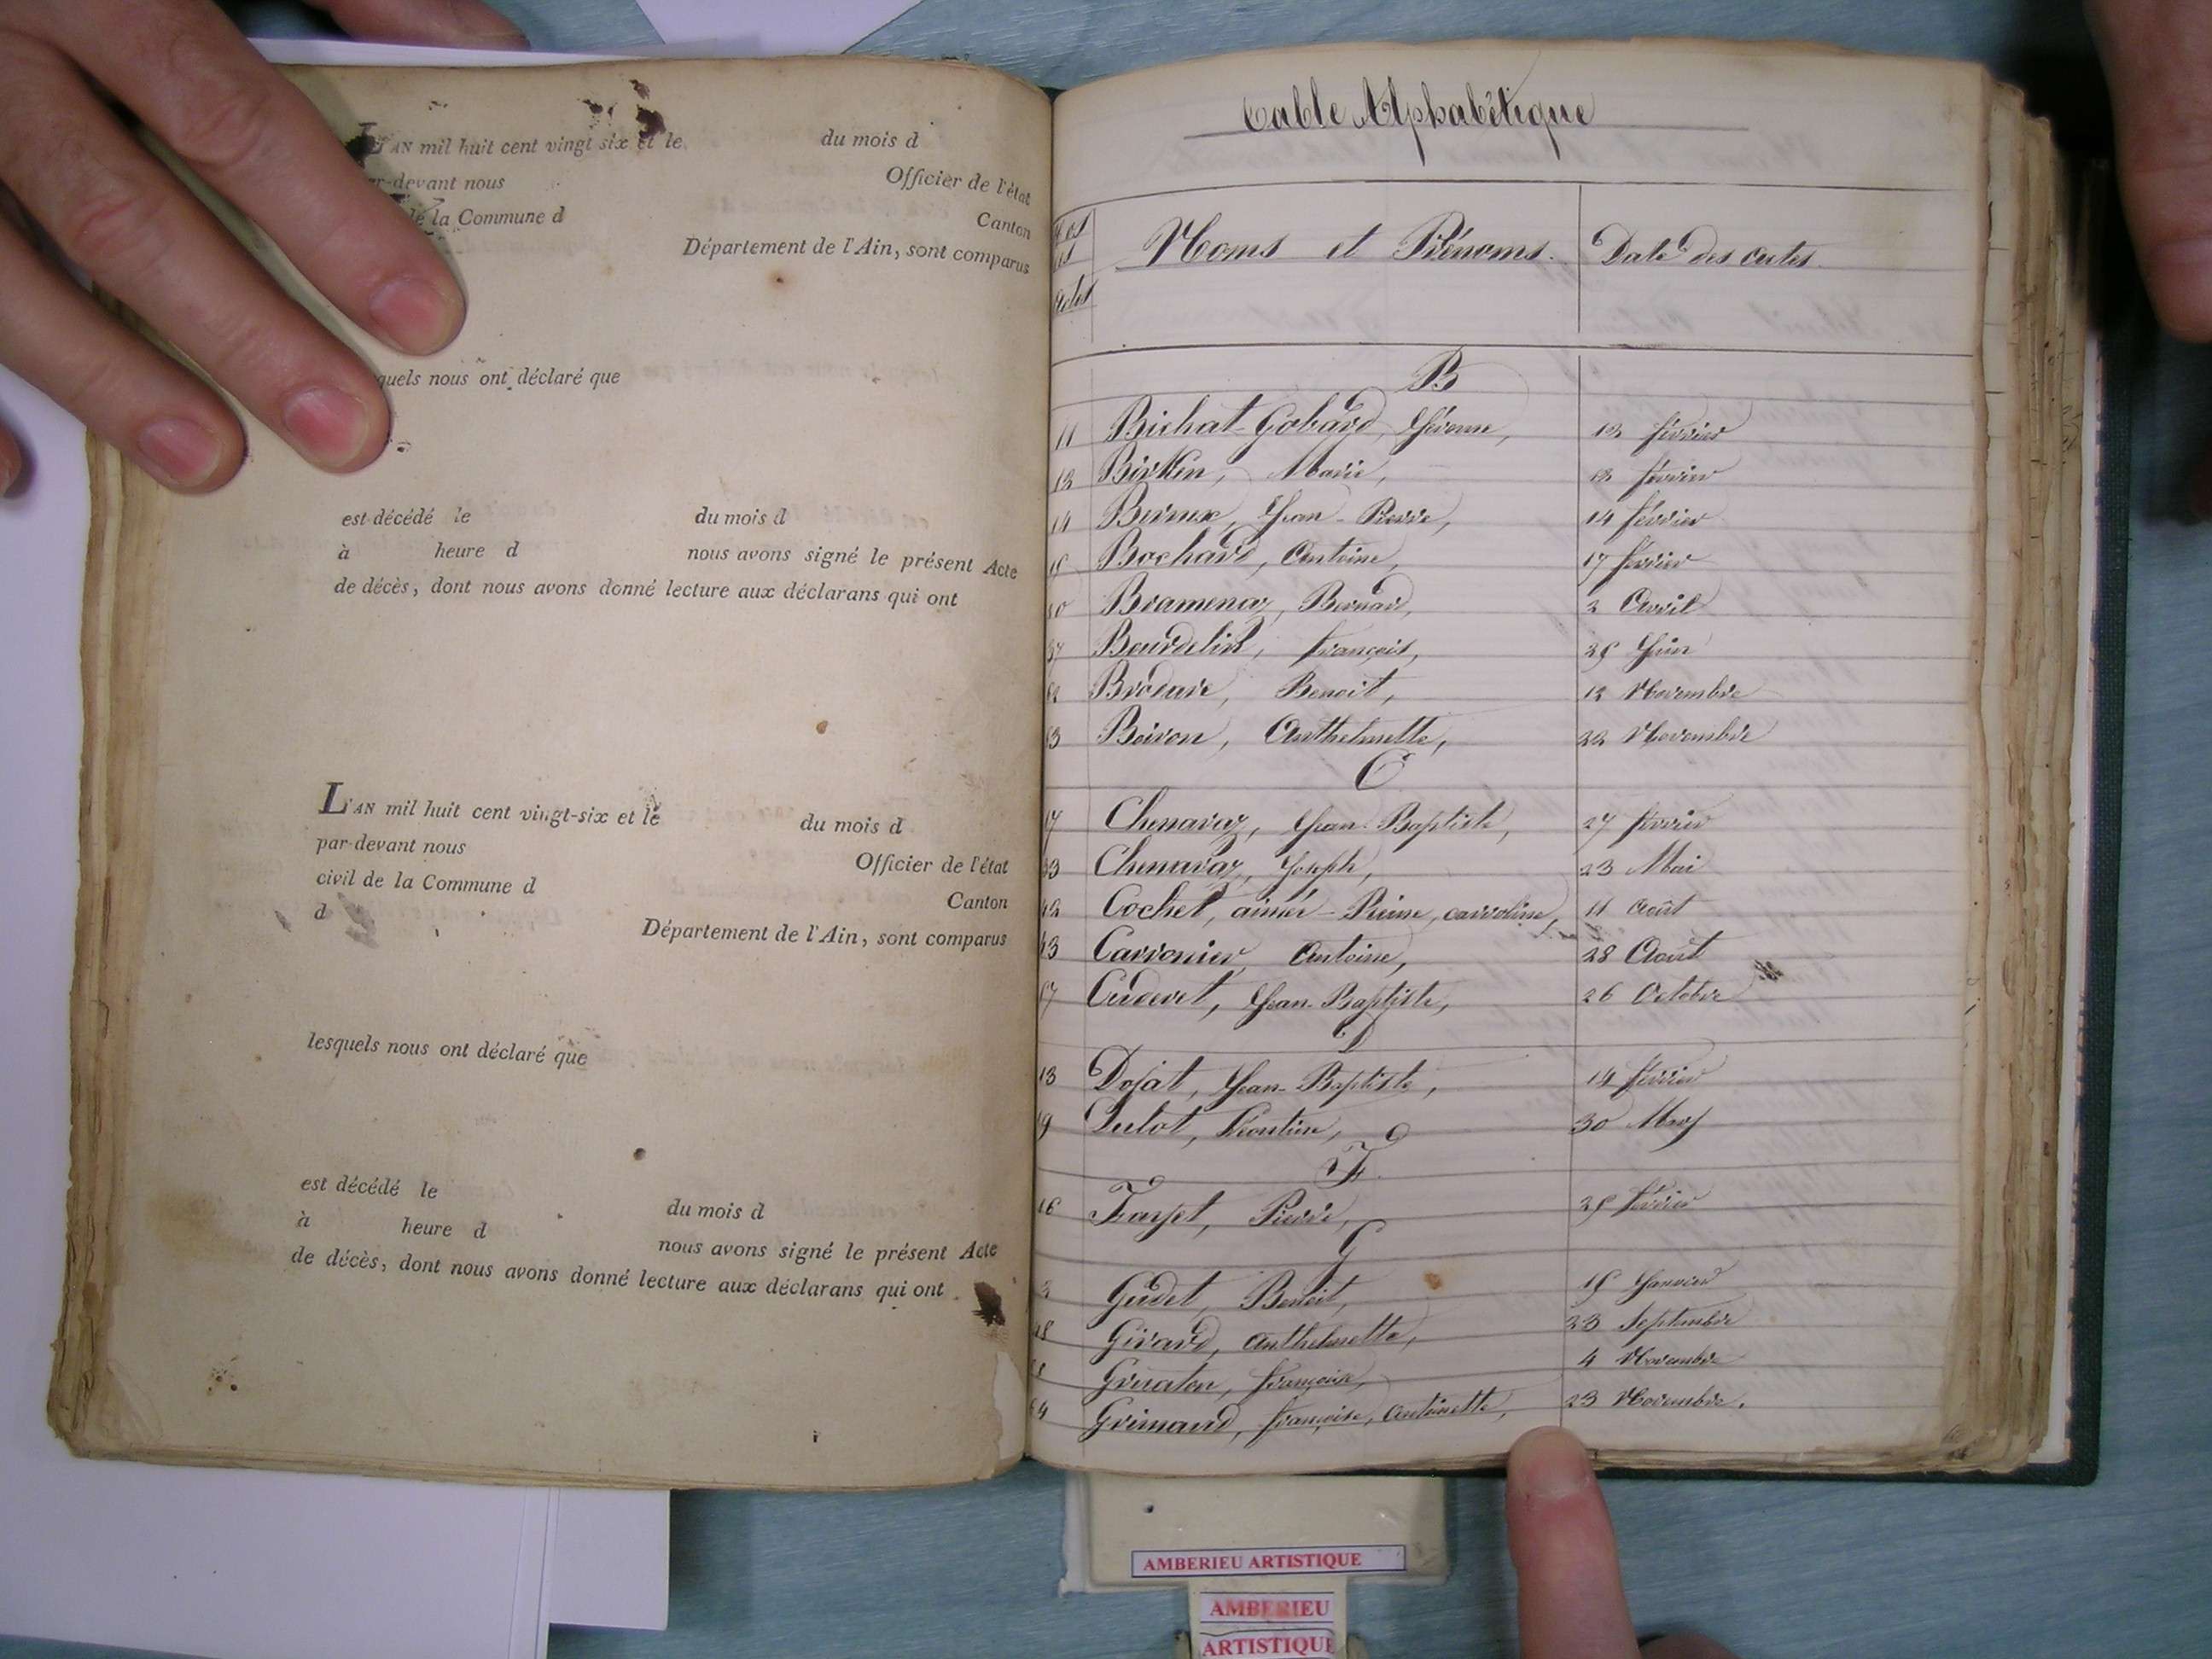 L'AN mil huit cent vingt six et le du mois d
par-devant nous Officier de l'état
de la Commune d Canton
Département de l'Ain, sont comparus
quels nous ont déclaré que
est décédé le du mois d
à heure d nous avons signé le présent Acte
de décès, dont nous avons donné lecture aux déclarans qui ont
L'AN mil huit cent vingt-six et le du mois d
par-devant nous Officier de l'état
civil de la Commune d Canton
d Département de l'Ain, sont comparus
lesquels nous ont déclaré que
est décédé le du mois d
à heure d nous avons signé le présent Acte
de décès, dont nous avons donné lecture aux déclarans qui ont
Table Alphabétique
Actes Noms et Prénoms. Date des actes.
B
11 Bichat-Gobard, 12 février
12 Birken, Marie, 13 février
14 Jean-Pierre, 14 février
15 Bochard, Antoine, 17 février
30 Bramenaz, Bernard, 2 Avril
37 Bourdelin, François, 25 Juin
62 Brodare, Benoit, 12 Novembre
63 Boiron, Anthelmette, 22 Novembre
C
17 Chenavaz, Jean-Baptiste, 27 février
33 Chenavaz, Joseph, 23 Mai
42 Cochet, aimée-Prime, carroline, 11 Août
43 Carronier, Antoine, 28 Août
57 Cudevet, Jean-Baptiste, 26 Octobre
D
13 Dojat, Jean-Baptiste, 14 février
19 Dulot, Léontine, 30 Mars
F
16 Farjet, Pierre, 25 février
G
3 Gudet, Benoit, 15 Janvier
48 Girard, anthelmette, 23 Septembre
58 françoise, 4 Novembre
64 Grimaud, françoise, Antoinette, 23 Novembre.
AMBERIEU ARTISTIQUE
AMBERIEU
ARTISTIQUE